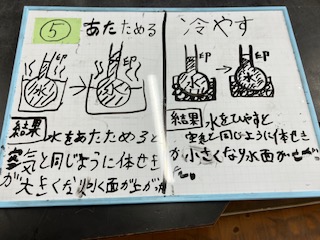 ⑤ あたためる
印
印
水
水
結果 水をあたためると
空気と同じように体せき
が大きくなり水面が上がった
冷やす
印
印
水
水
結果 水をひやすと
空気と同じように体せき
が小さくなり水面が